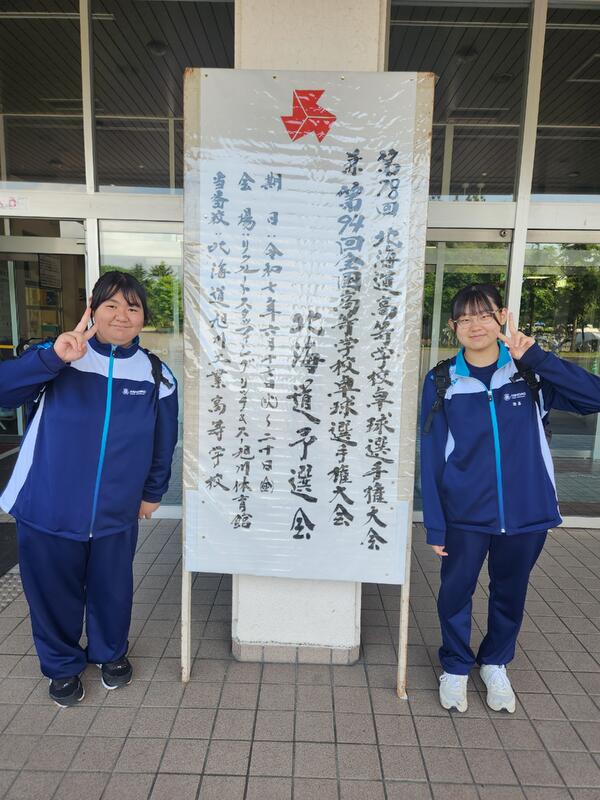 第78回 北海道高等学校卓球選手権大会
兼 第94回全国高等学校卓球選手権大会
北海道予選会
期日:令和七年六月十七日(火)~二十日(金)
会場:リアルトスタファインアリーナ旭川体育館
当番校:北海道旭川工業高等学校